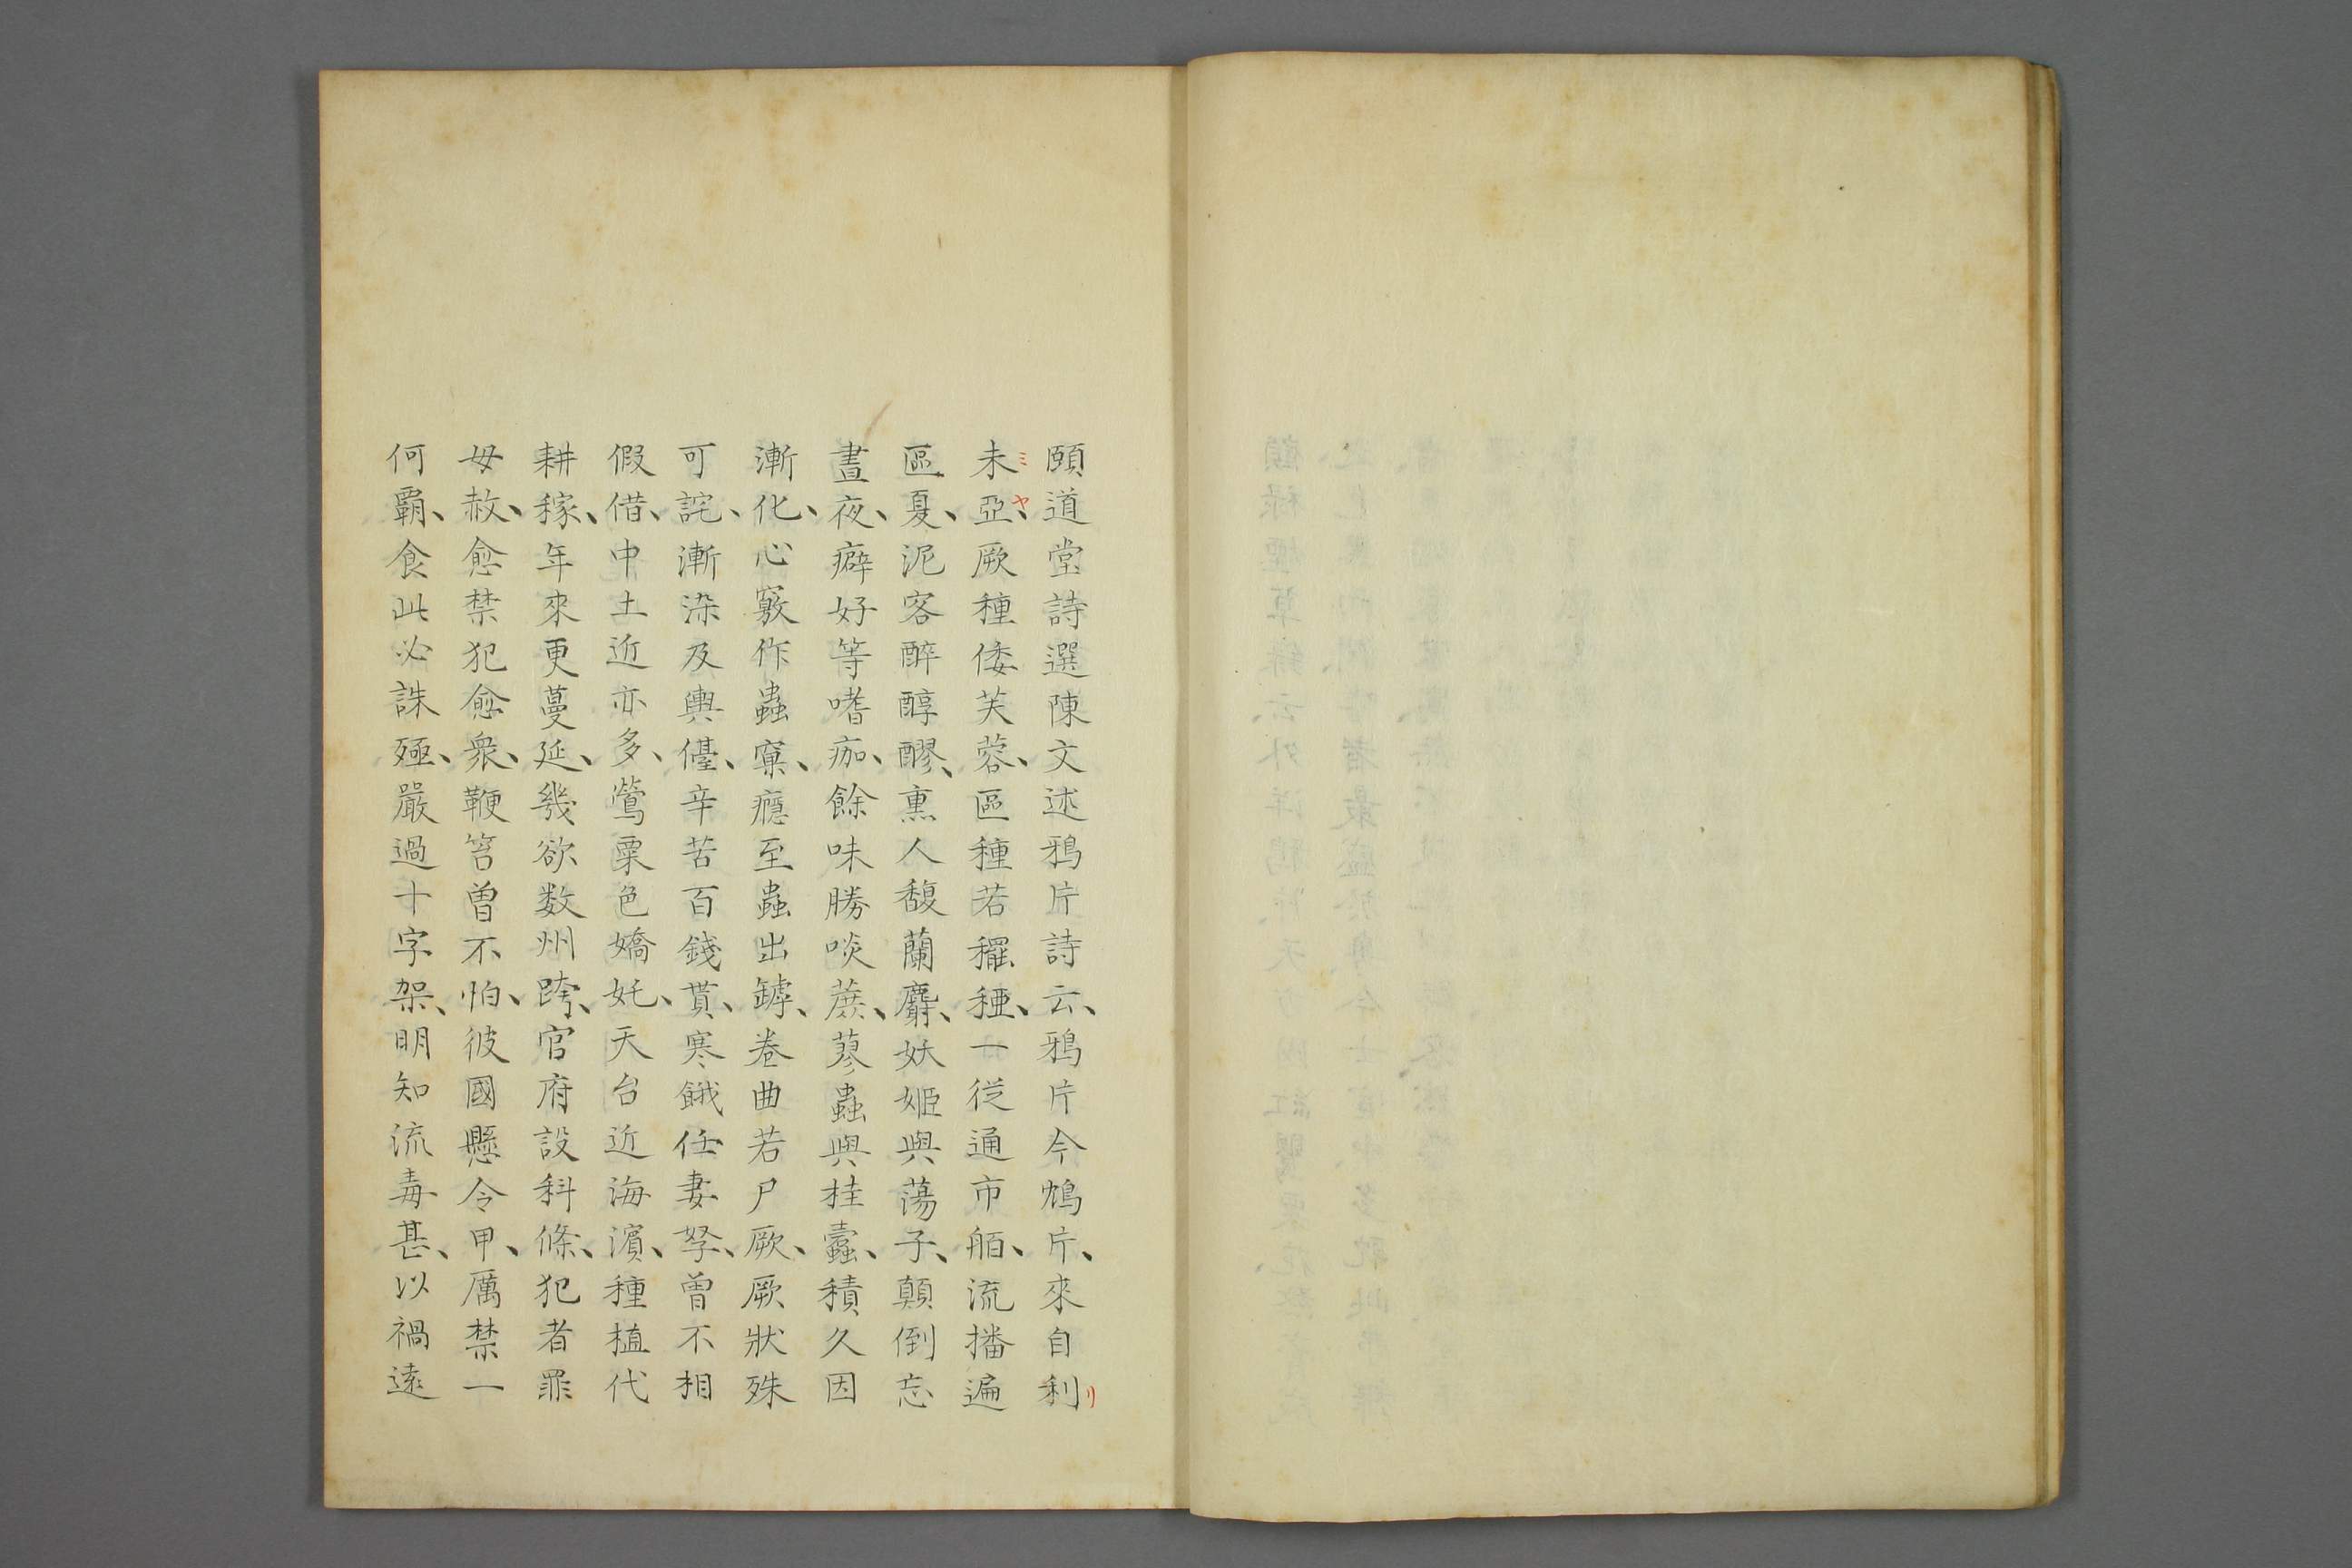 頤道堂詩選陳文述鴉片詩云、鴉片今鴆片、來自利リ
未ミ亞ヤ、厥種倭芙蓉、區種若穲種、一従通市舶、流播遍
區夏、泥客醉醇醪、熏人馥蘭麝、妖姬與蕩子、顛倒忘
晝夜、癖好等嗜痂、餘味勝啖蔗、蓼蟲與桂蠹、積久因
漸化、心竅作蟲窠、癮至蟲出罅、卷曲若尸厥、厥狀殊
可詫、漸染及輿儓、辛苦百錢貰、寒餓任妻孥、曾不相
假借、中土近亦多、鶯粟色嬌奼、天台近海濱、種植代
耕稼、年來更蔓延、幾欲数州跨、官府設科條、犯者罪
毋赦、愈禁犯愈衆、鞭笞曾不怕、彼國懸令甲、厲禁一
何覇、食此必誅殛、嚴過十字架、明知流毒甚、以禍遠